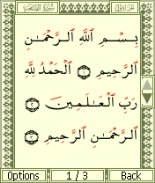 بِسْمِ ٱللَّهِ ٱلرَّحْمَـٰنِ
ٱلرَّحِيمِ ۝ ٱلْحَمْدُ لِلَّهِ
رَبِّ ٱلْعَـٰلَمِينَ ۝
ٱلرَّحْمَـٰنِ ٱلرَّحِيمِ ۝
Options 1 / 3 Back